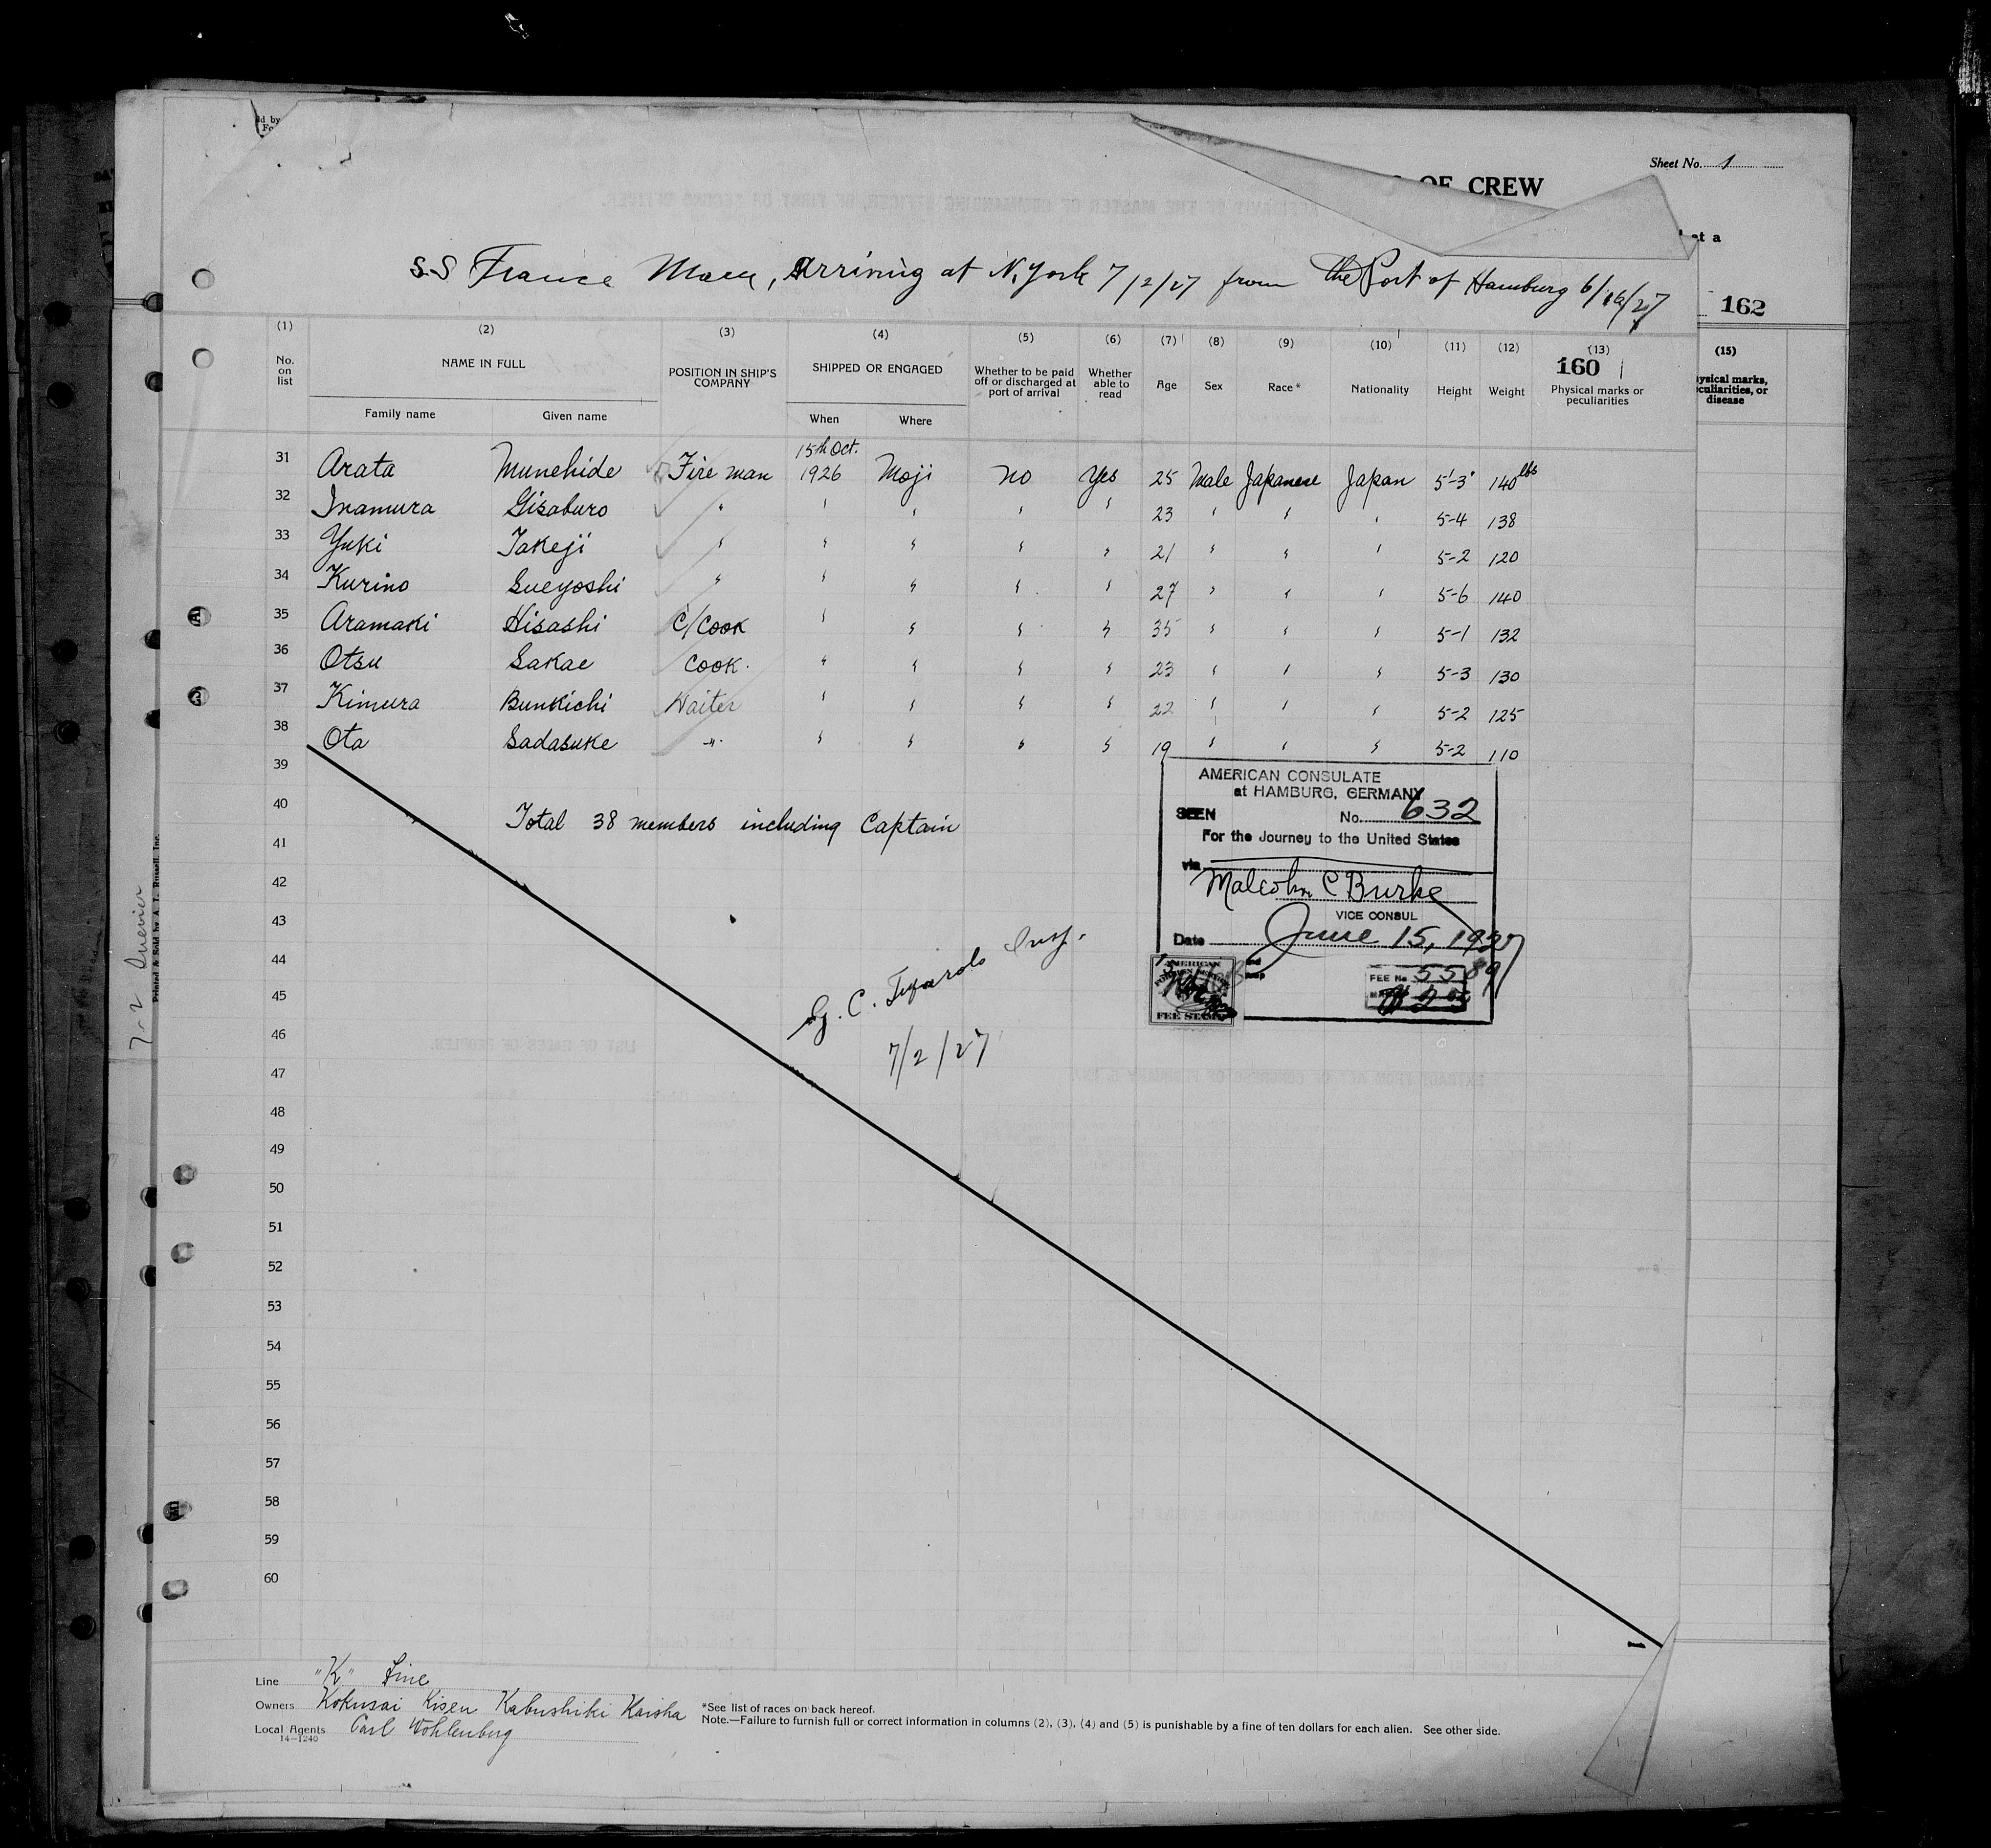 Sheet No. 1
OF CREW
at a
S.S France Maru, Arriving at N. York 7/2/27 from the Port of Hamburg 6/16/27
162
(1) (2) (3) (4) (5) (6) (7) (8) (9) (10) (11) (12) (13) (15)
No. on list NAME IN FULL POSITION IN SHIP'S COMPANY SHIPPED OR ENGAGED Whether to be paid off or discharged at port of arrival Whether able to read Age Sex Race* Nationality Height Weight 160 Physical marks or peculiarities ysical marks, eculiarities, or disease
Family name Given name When Where
31 Arata Munehide Fire man 15th Oct. 1926 Moji no Yes 25 Male Japanese Japan 5'-3" 140 lbs
32 Inamura Gisaburo " " " " " 23 " " " 5-4 138
33 Yuki Takeji " " " " " 21 " " " 5-2 120
34 Kurino Sueyoshi " " " " " 27 " " " 5-6 140
35 Aramaki Hisashi C/Cook " " " " 35 " " " 5-1 132
36 Otsu Sakae Cook. " " " " 23 " " " 5-3 130
37 Kimura Bunkichi Waiter " " " " 22 " " " 5-2 125
38 Ota Sadasuke " " " " " 19 " " " 5-2 110
39
40 Total 38 members including Captain
41
42
43
44
45
46
47
48
49
50
51
52
53
54
55
56
57
58
59
60
AMERICAN CONSULATE
at HAMBURG, GERMANY
SEEN No. 632
For the Journey to the United States
via
Malcolm C Burke
VICE CONSUL
Date June 15, 1927
AMERICAN
FEE STAMP
FEE No 5589
7/2/27
Printed & Sold by A. T. Russell, Inc.
7-2
Line "K" Line
Owners Kokusai Kisen Kabushiki Kaisha
Local Agents Carl Wohlenberg
14—1240
*See list of races on back hereof.
Note.—Failure to furnish full or correct information in columns (2), (3), (4) and (5) is punishable by a fine of ten dollars for each alien. See other side.